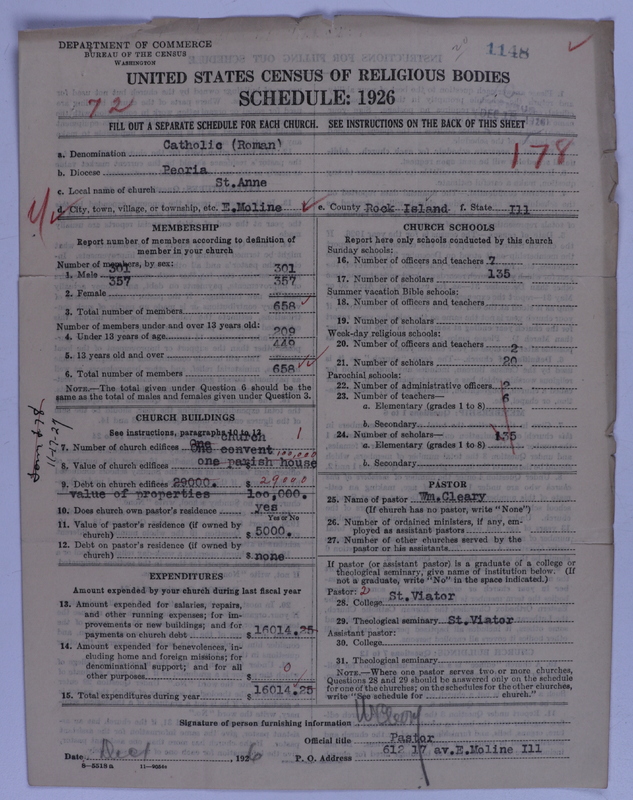 DEPARTMENT OF COMMERCE
BUREAU OF THE CENSUS
WASHINGTON
1148
UNITED STATES CENSUS OF RELIGIOUS BODIES
SCHEDULE: 1926
72
FILL OUT A SEPARATE SCHEDULE FOR EACH CHURCH. SEE INSTRUCTIONS ON THE BACK OF THIS SHEET
178
a. Denomination Catholic (Roman)
b. Diocese Peoria
c. Local name of church St.Anne
d. City, town, village, or township, etc. E.Moline e. County Rock Island f. State Ill
MEMBERSHIP
Report number of members according to definition of member in your church
Number of members, by sex:
1. Male 301 301
357 357
2. Female
3. Total number of members 658
Number of members under and over 13 years old:
4. Under 13 years of age 209
449
5. 13 years old and over
6. Total number of members 658
NOTE.—The total given under Question 6 should be the same as the total of males and females given under Question 3.
CHURCH BUILDINGS
See instructions, paragraphs 10 to 12
7. Number of church edifices One church 1
One convent
8. Value of church edifices one parish house 100,000
9. Debt on church edifices 29000. $ 29000
value of properties 100,000.
10. Does church own pastor's residence yes
Yes or No
11. Value of pastor's residence (if owned by church) $ 5000.
12. Debt on pastor's residence (if owned by church) $ none
EXPENDITURES
Amount expended by your church during last fiscal year
13. Amount expended for salaries, repairs, and other running expenses; for improvements or new buildings; and for payments on church debt $ 16014.25
14. Amount expended for benevolences, including home and foreign missions; for denominational support; and for all other purposes $ 0
15. Total expenditures during year $ 16014.25
CHURCH SCHOOLS
Report here only schools conducted by this church
Sunday schools:
16. Number of officers and teachers 7
17. Number of scholars 135
Summer vacation Bible schools:
18. Number of officers and teachers
19. Number of scholars
Week-day religious schools:
20. Number of officers and teachers 2
21. Number of scholars 20
Parochial schools:
22. Number of administrative officers 2
23. Number of teachers—
a. Elementary (grades 1 to 8) 6
b. Secondary
24. Number of scholars— 135
a. Elementary (grades 1 to 8)
b. Secondary
PASTOR
25. Name of pastor Wm.Cleary
(If church has no pastor, write "None")
26. Number of ordained ministers, if any, employed as assistant pastors
27. Number of other churches served by the pastor or his assistants
If pastor (or assistant pastor) is a graduate of a college or theological seminary, give name of institution below. (If not a graduate, write "No" in the space indicated.)
Pastor: 2
28. College St.Viator
29. Theological seminary St.Viator
Assistant pastor:
30. College
31. Theological seminary
NOTE.—Where one pastor serves two or more churches, Questions 28 and 29 should be answered only on the schedule for one of the churches; on the schedules for the other churches, write "See schedule for church."
Signature of person furnishing information WCleary
Official title Pastor
Date Dec 1, 1926 P. O. Address 612 17 av.E.Moline Ill
8-5518a